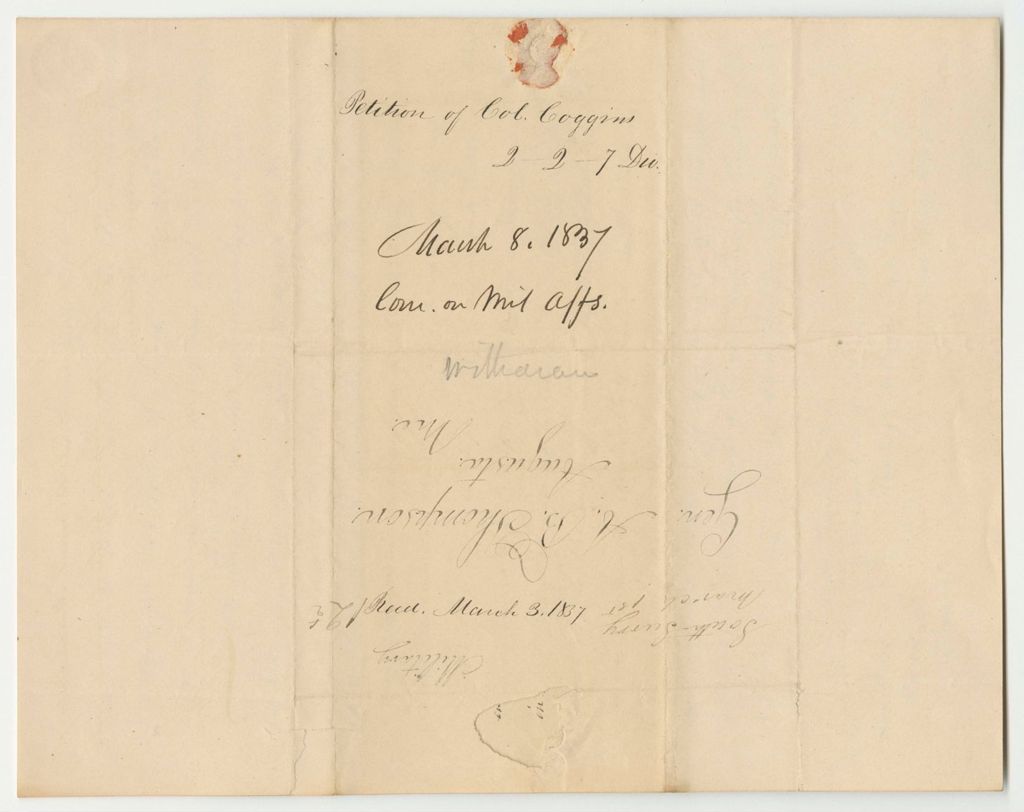 Petition of Col. Coggins
2 - 2 - 7 Div.
March 8. 1837
Com. on Mil Affs.
Withdrawn
Recd. March 3. 1837
South Surry
March 1st
Gen. A. B. Thompson.
Augusta.
Me.
Military